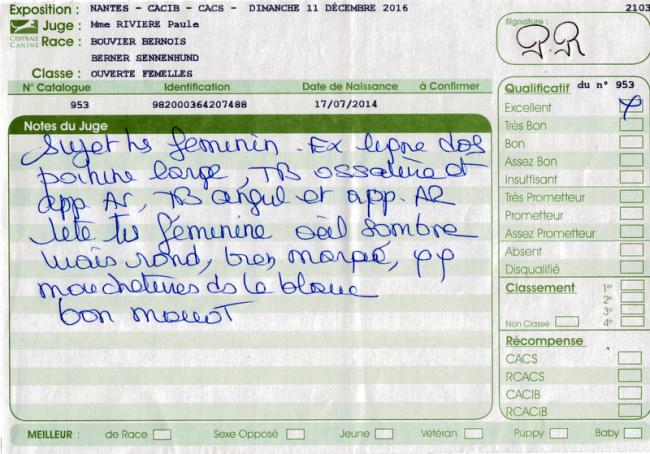 Exposition : NANTES - CACIB - CACS - DIMANCHE 11 DÉCEMBRE 2016
2103
CENTRALE CANINE
Juge : Mme RIVIERE Paule
Race : BOUVIER BERNOIS
BERNER SENNENHUND
Classe : OUVERTE FEMELLES
Signature :
P.R
N° Catalogue Identification Date de Naissance à Confirmer
953 982000364207488 17/07/2014
Notes du Juge
Sujet ts feminin. Ex ligne dos
poitrine large, TB ossature et
app Av, TB angul et app. AR
Tete ts féminine oeil sombre
mais rond, bien marqué, qq
mouchetures ds le blanc
bon mouvt
Qualificatif du n° 953
Excellent
Très Bon
Bon
Assez Bon
Insuffisant
Très Prometteur
Prometteur
Assez Prometteur
Absent
Disqualifié
Classement 1er
2e
3e
Non Classé 4e
Récompense
CACS
RCACS
CACIB
RCACIB
MEILLEUR : de Race Sexe Opposé Jeune Vétéran Puppy Baby